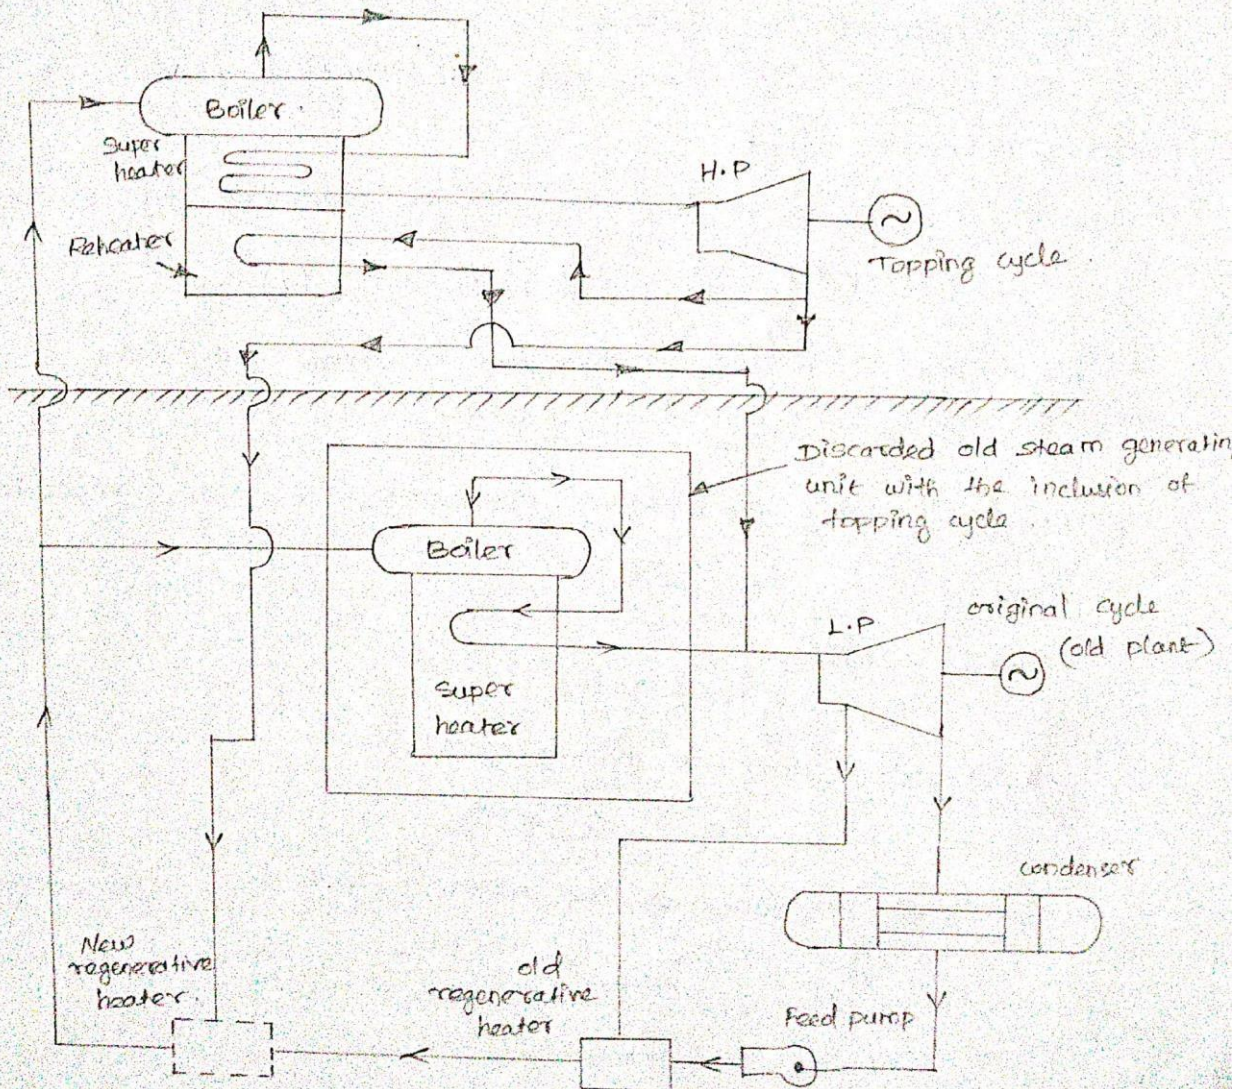 Boiler.
Super
heater
H.P
Reheater
Topping cycle.
Discarded old steam generatin
unit with the inclusion of
topping cycle.
Boiler
original cycle
(old plant)
L.P
Super
heater
condenser
New
regenerative
heater.
old
regenerative
heater
Feed pump